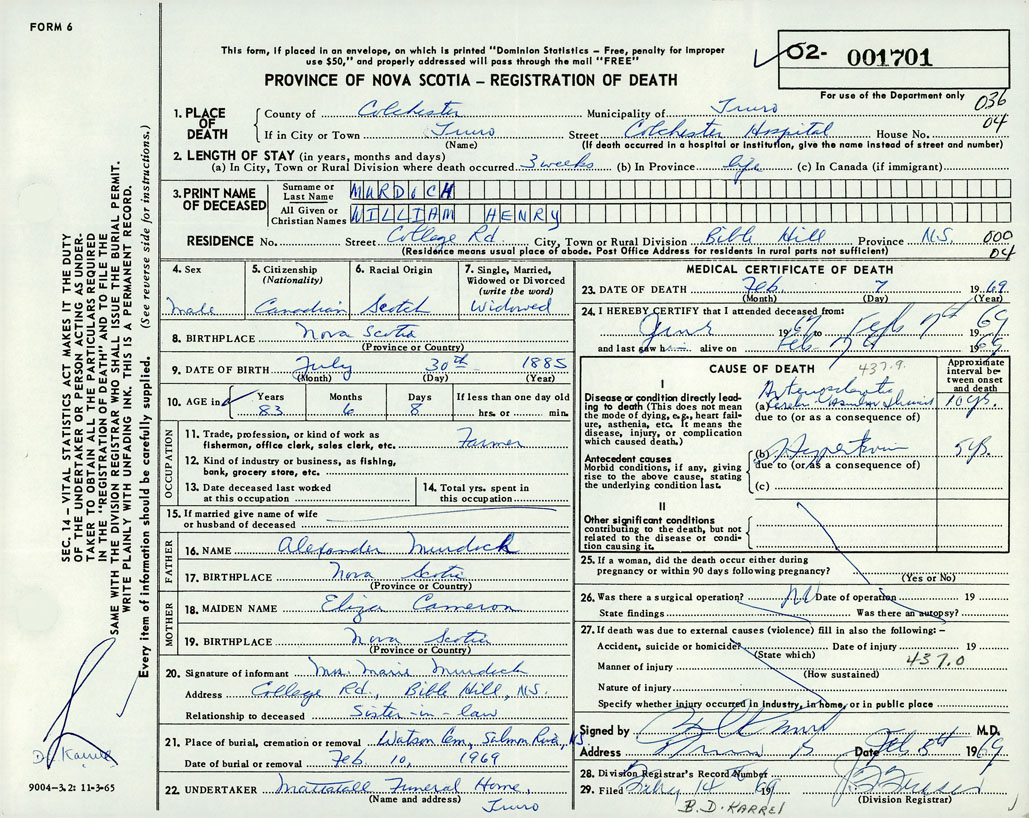 FORM 6
This form, if placed in an envelope, on which is printed "Dominion Statistics – Free, penalty for improper
use $50," and properly addressed will pass through the mail "FREE"
PROVINCE OF NOVA SCOTIA – REGISTRATION OF DEATH
02- 001701
For use of the Department only
036
04
1. PLACE OF DEATH
County of Colchester Municipality of Truro
If in City or Town Truro Street Colchester Hospital House No.
(Name) (If death occurred in a hospital or institution, give the name instead of street and number)
2. LENGTH OF STAY (in years, months and days)
(a) In City, Town or Rural Division where death occurred 3 weeks (b) In Province life (c) In Canada (if immigrant)
3. PRINT NAME OF DECEASED
Surname or Last Name MURDOCH
All Given or Christian Names WILLIAM HENRY
RESIDENCE No. Street College Rd. City, Town or Rural Division Bible Hill Province N.S. 000
(Residence means usual place of abode. Post Office Address for residents in rural parts not sufficient) 04
4. Sex
Male
5. Citizenship
(Nationality)
Canadian
6. Racial Origin
Scotch
7. Single, Married,
Widowed or Divorced
(write the word)
Widowed
8. BIRTHPLACE Nova Scotia
(Province or Country)
9. DATE OF BIRTH July 30th 1885
(Month) (Day) (Year)
10. AGE in Years Months Days If less than one day old
83 6 8 hrs. or min.
OCCUPATION
11. Trade, profession, or kind of work as
fisherman, office clerk, sales clerk, etc. Farmer
12. Kind of industry or business, as fishing,
bank, grocery store, etc.
13. Date deceased last worked
at this occupation
14. Total yrs. spent in
this occupation
15. If married give name of wife
or husband of deceased
FATHER
16. NAME Alexander Murdock
17. BIRTHPLACE Nova Scotia
(Province or Country)
MOTHER
18. MAIDEN NAME Eliza Cameron
19. BIRTHPLACE Nova Scotia
(Province or Country)
20. Signature of informant Mrs. Marie Murdock
Address College Rd., Bible Hill, N.S.
Relationship to deceased Sister-in-law
21. Place of burial, cremation or removal Watson Cem, Salmon River, NS.
Date of burial or removal Feb. 10, 1969
22. UNDERTAKER Mattatall Funeral Home,
(Name and address) Truro
MEDICAL CERTIFICATE OF DEATH
23. DATE OF DEATH Feb. 7 1969
(Month) (Day) (Year)
24. I HEREBY CERTIFY that I attended deceased from:
1967 to Feb 7th 1969
and last saw him alive on Feb 7th 1969
CAUSE OF DEATH 437.9.
Approximate interval between onset and death
I
Disease or condition directly leading to death (This does not
mean the mode of dying, e.g., heart failure, asthenia, etc. It means the
disease, injury, or complication
which caused death.)
(a) 10 yrs.
due to (or as a consequence of)
(b) 5 yrs.
due to (or as a consequence of)
(c)
Antecedent causes
Morbid conditions, if any, giving
rise to the above cause, stating
the underlying condition last.
II
Other significant conditions
contributing to the death, but not
related to the disease or condition causing it.
25. If a woman, did the death occur either during
pregnancy or within 90 days following pregnancy?
(Yes or No)
26. Was there a surgical operation? No Date of operation 19
State findings Was there an autopsy?
27. If death was due to external causes (violence) fill in also the following: –
Accident, suicide or homicide? Date of injury 19
(State which) 437.0
Manner of injury
(How sustained)
Nature of injury
Specify whether injury occurred in industry, in home, or in public place
Signed by M.D.
Address Date Feb. 8th 1969
28. Division Registrar's Record Number
29. Filed 14 69
(Division Registrar)
B. D. KARREL
SEC. 14 – VITAL STATISTICS ACT MAKES IT THE DUTY
OF THE UNDERTAKER OR PERSON ACTING AS UNDER-
TAKER TO OBTAIN ALL THE PARTICULARS REQUIRED
IN THE "REGISTRATION OF DEATH" AND TO FILE THE
SAME WITH THE DIVISION REGISTRAR WHO SHALL ISSUE THE BURIAL PERMIT.
WRITE PLAINLY WITH UNFADING INK. THIS IS A PERMANENT RECORD.
Every item of information should be carefully supplied. (See reverse side for instructions.)
9004–3.2: 11-3-65